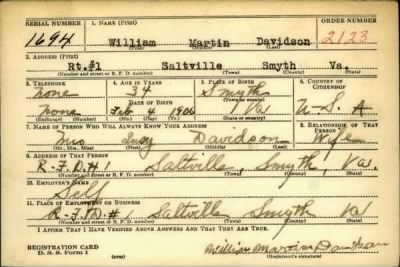 SERIAL NUMBER 1. NAME (Print) ORDER NUMBER
1694 William Martin Davidson 2123
(First) (Middle) (Last)
2. ADDRESS (Print)
Rt.#1 Saltville Smyth Va.
(Number and street or R. F. D. number) (Town) (County) (State)
3. TELEPHONE 4. AGE IN YEARS 5. PLACE OF BIRTH 6. COUNTRY OF CITIZENSHIP
None 34 Smyth
DATE OF BIRTH (Town or county)
None Feb 4 1906 Va U. S. A
(Exchange) (Number) (Mo.) (Day) (Yr.) (State or country)
7. NAME OF PERSON WHO WILL ALWAYS KNOW YOUR ADDRESS 8. RELATIONSHIP OF THAT PERSON
Mrs Davidson Wife
(Mr., Mrs., Miss) (First) (Middle) (Last)
9. ADDRESS OF THAT PERSON
R-F.D.#1 Saltville, Smyth, Va.
(Number and street or R. F. D. number) (Town) (County) (State)
10. EMPLOYER'S NAME
Self
11. PLACE OF EMPLOYMENT OR BUSINESS
R-F.D.#1 Saltville Smyth Va
(Number and street or R. F. D. number) (Town) (County) (State)
I AFFIRM THAT I HAVE VERIFIED ABOVE ANSWERS AND THAT THEY ARE TRUE.
REGISTRATION CARD
D. S. S. Form 1
William Martin Davidson
(Registrant's signature)